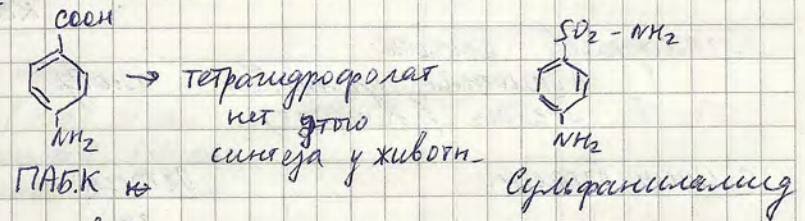 COOH
SO₂ - NH₂
→ тетрагидрофолат
нет этого
синтеза у животн.
NH₂
NH₂
ПАБК
Сульфаниламид